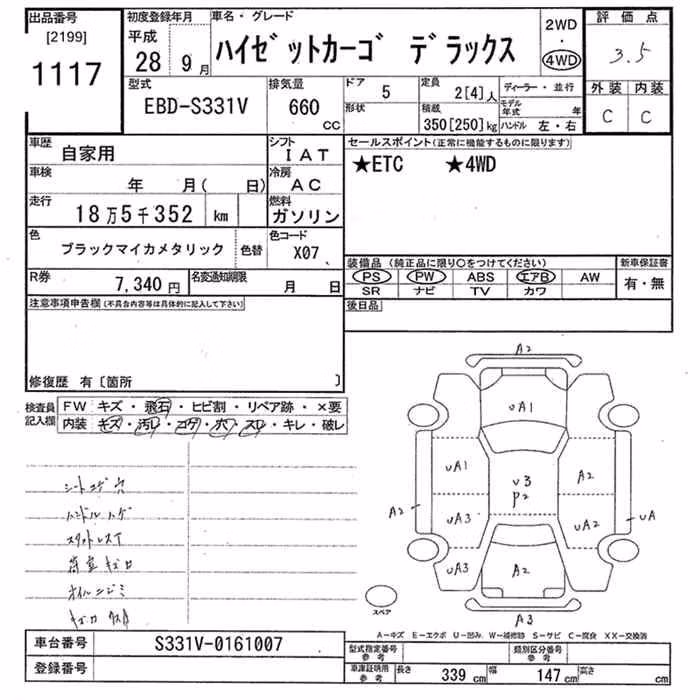 出品番号 初度登録年月 車名・グレード 2WD・4WD 評価点
[2199] 平成
1117 28年 9月 ハイゼットカーゴ デラックス 3.5
型式 排気量 ドア 定員 ディーラー・並行 外装 内装
EBD-S331V 660 cc 5 2[4]人 モデル年式 年 C C
形状 積載 350[250]kg ハンドル 左・右
車歴 自家用 シフト IAT セールスポイント(正常に機能するものに限ります)
車検 年 月( 日) 冷房 AC ★ETC ★4WD
走行 18万5千352 km 燃料 ガソリン
色 ブラックマイカメタリック 色替 色コード X07
装備品(純正品に限り○をつけてください) 新車保証書
R券 7,340円 名変通知期限 月 日 PS PW ABS エアB AW 有・無
SR ナビ TV カワ
注意事項申告欄(不具合内容等は具体的に記入して下さい) 後日品
修復歴 有〔箇所 〕
検査員記入欄 FW キズ・飛石・ヒビ割・リペア跡・×要
内装 キズ・汚レ・コゲ・穴・スレ・キレ・破レ
シートコゲ穴
ハンドルハゲ
荷室キズ凹
オイルニジミ
A2
UA1
UA1 U3 P2 A2
A2 UA3 UA2 UA
UA3 A2
スペア A3
A-キズ E-エクボ U-凹み W-補修跡 S-サビ C-腐食 XX-交換済
車台番号 S331V-0161007 型式指定番号 参考 類別区分番号 参考
登録番号 車庫証明用 参考 長さ 339cm 幅 147cm 高さ cm